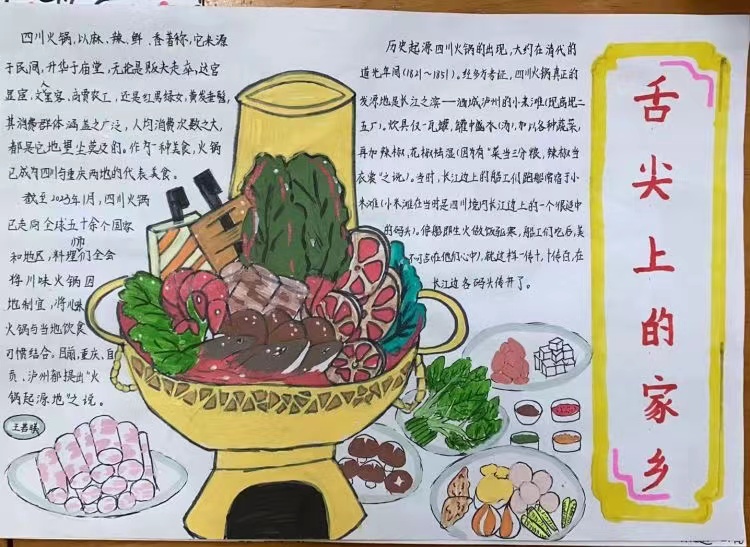 四川火锅,以麻、辣、鲜、香著称,它来源
于民间,升华于庙堂,无论是贩夫走卒,达官
显宦,文人骚客,商贾农工,还是红男绿女,黄发垂髫,
其消费群体涵盖之广泛,人均消费次数之大,
都是它地望尘莫及的。作为一种美食,火锅
已成为四川与重庆两地的代表美食。
截至2023年1月,四川火锅
已走向全球五十余个国家
和地区,料理师们全会
将川味火锅因
地制宜,将川味
火锅与当地饮食
习惯结合。目前,重庆、自
贡、泸州都提出“火
锅起源地”之说。
历史起源四川火锅的出现,大约在清代的
道光年间(1821~1851)。经多方考证,四川火锅真正的
发源地是长江之滨——酒城泸州的小米滩(现高坝二
五厂)。炊具仅一瓦罐,罐中盛水(汤),加以各种蔬菜,
再加辣椒,花椒祛湿(因为有“菜当三分粮,辣椒当
衣裳”之说)。当时,长江边上的船工们跑船常宿于小
米滩(小米滩在当时是四川境内长江边上的一个很适中
的码头)。停船即生火做饭驱寒,船工们吃后,美
不可言在他们心中),就这样一传十,十传百,在
长江边各码头传开了。
舌尖上的家乡